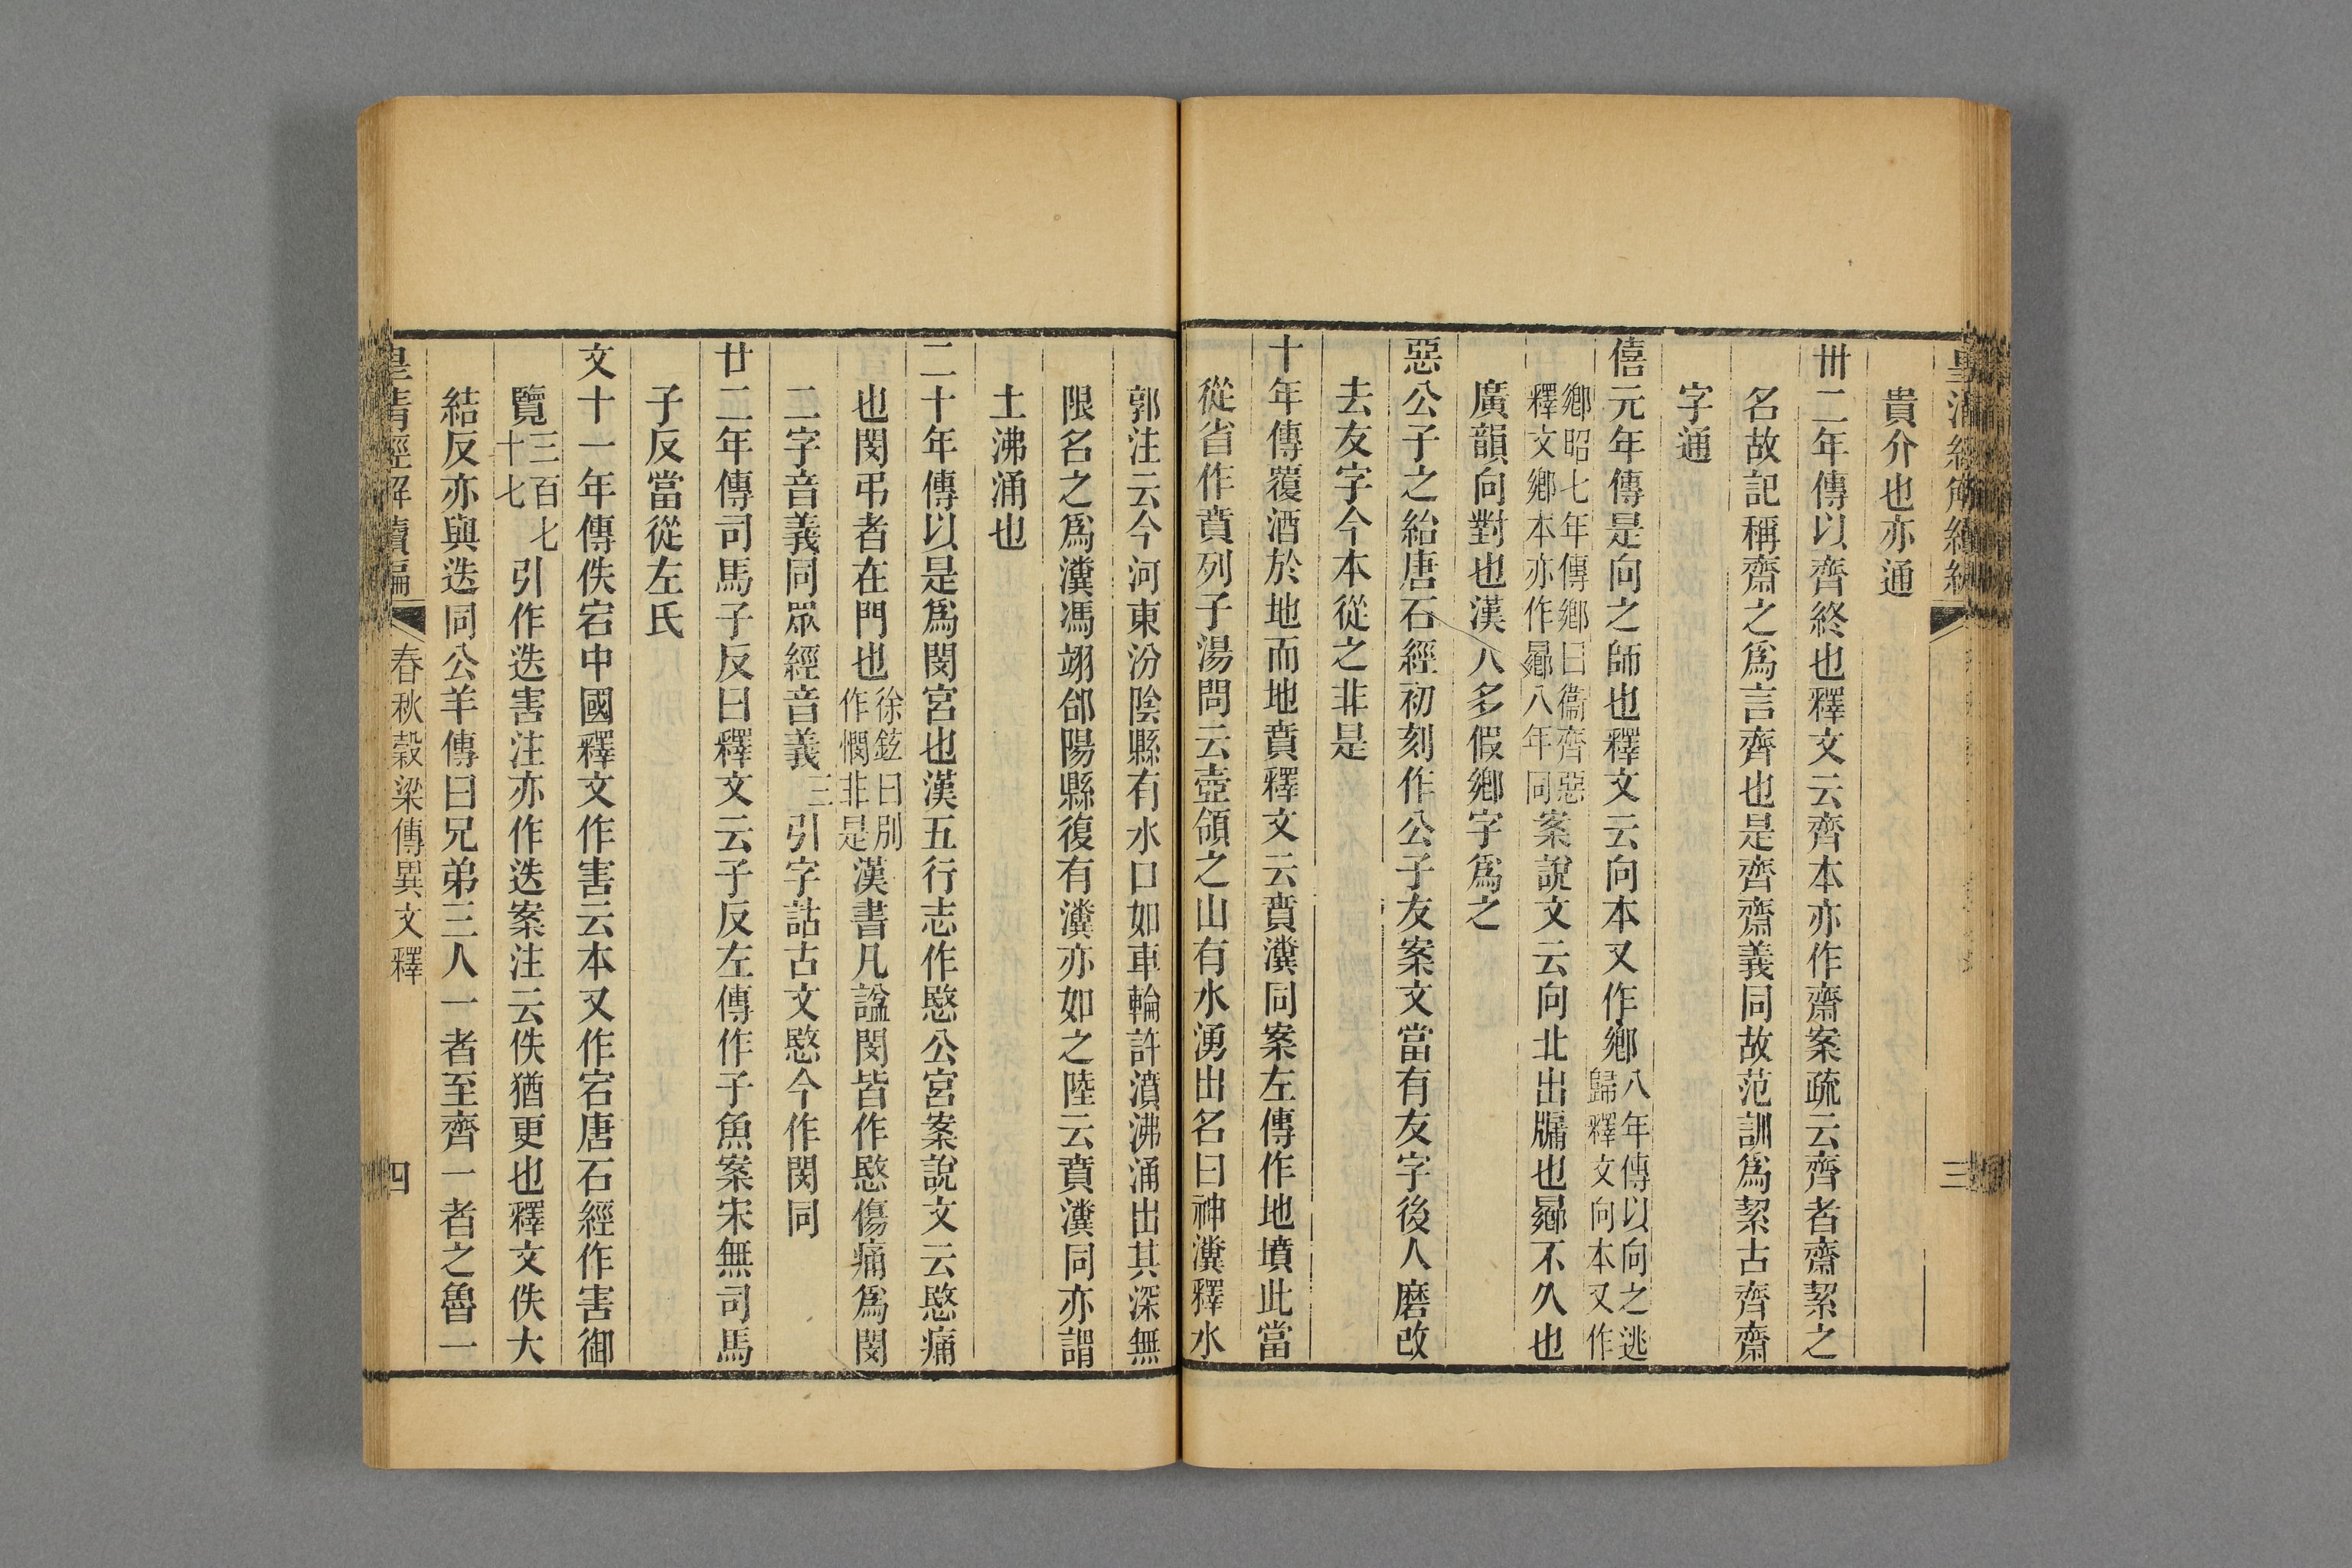 貴介也亦通
卌二年傳以齊終也釋文云齊本亦作齋案疏云齊者齋絜之
名故記稱齋之爲言齊也是齊齋義同故范訓爲絜古齊齋
字通
僖元年傳是向之師也釋文云向本又作鄉八年傳以向之逃歸釋文向本又作
鄉昭七年傳鄉曰衞齊惡釋文鄉本亦作曏八年同案說文云向北出牖也曏不久也
廣韻向對也漢人多假鄉字爲之
惡公子之紿唐石經初刻作公子友案文當有友字後人磨改
去友字今本從之非是
十年傳覆酒於地而地賁釋文云賁瀵同案左傳作地墳此當
從省作賁列子湯問云壺領之山有水湧出名曰神瀵釋水
郭注云今河東汾陰縣有水口如車輪許濆沸涌出其深無
限名之爲瀵馮翊郃陽縣復有瀵亦如之陸云賁瀵同亦謂
土沸涌也
二十年傳以是爲閔宮也漢五行志作愍公宮案說文云愍痛
也閔弔者在門也徐鉉曰別作憫非是漢書凡諡閔皆作愍傷痛爲閔
二字音義同眾經音義三引字詁古文愍今作閔同
廿二年傳司馬子反曰釋文云子反左傳作子魚案宋無司馬
子反當從左氏
文十一年傳佚宕中國釋文作害云本又作宕唐石經作害御
覽三百七十七引作迭害注亦作迭案注云佚猶更也釋文佚大
結反亦與迭同公羊傳曰兄弟三人一者至齊一者之魯一
皇清經解續編
春秋穀梁傳異文釋
四